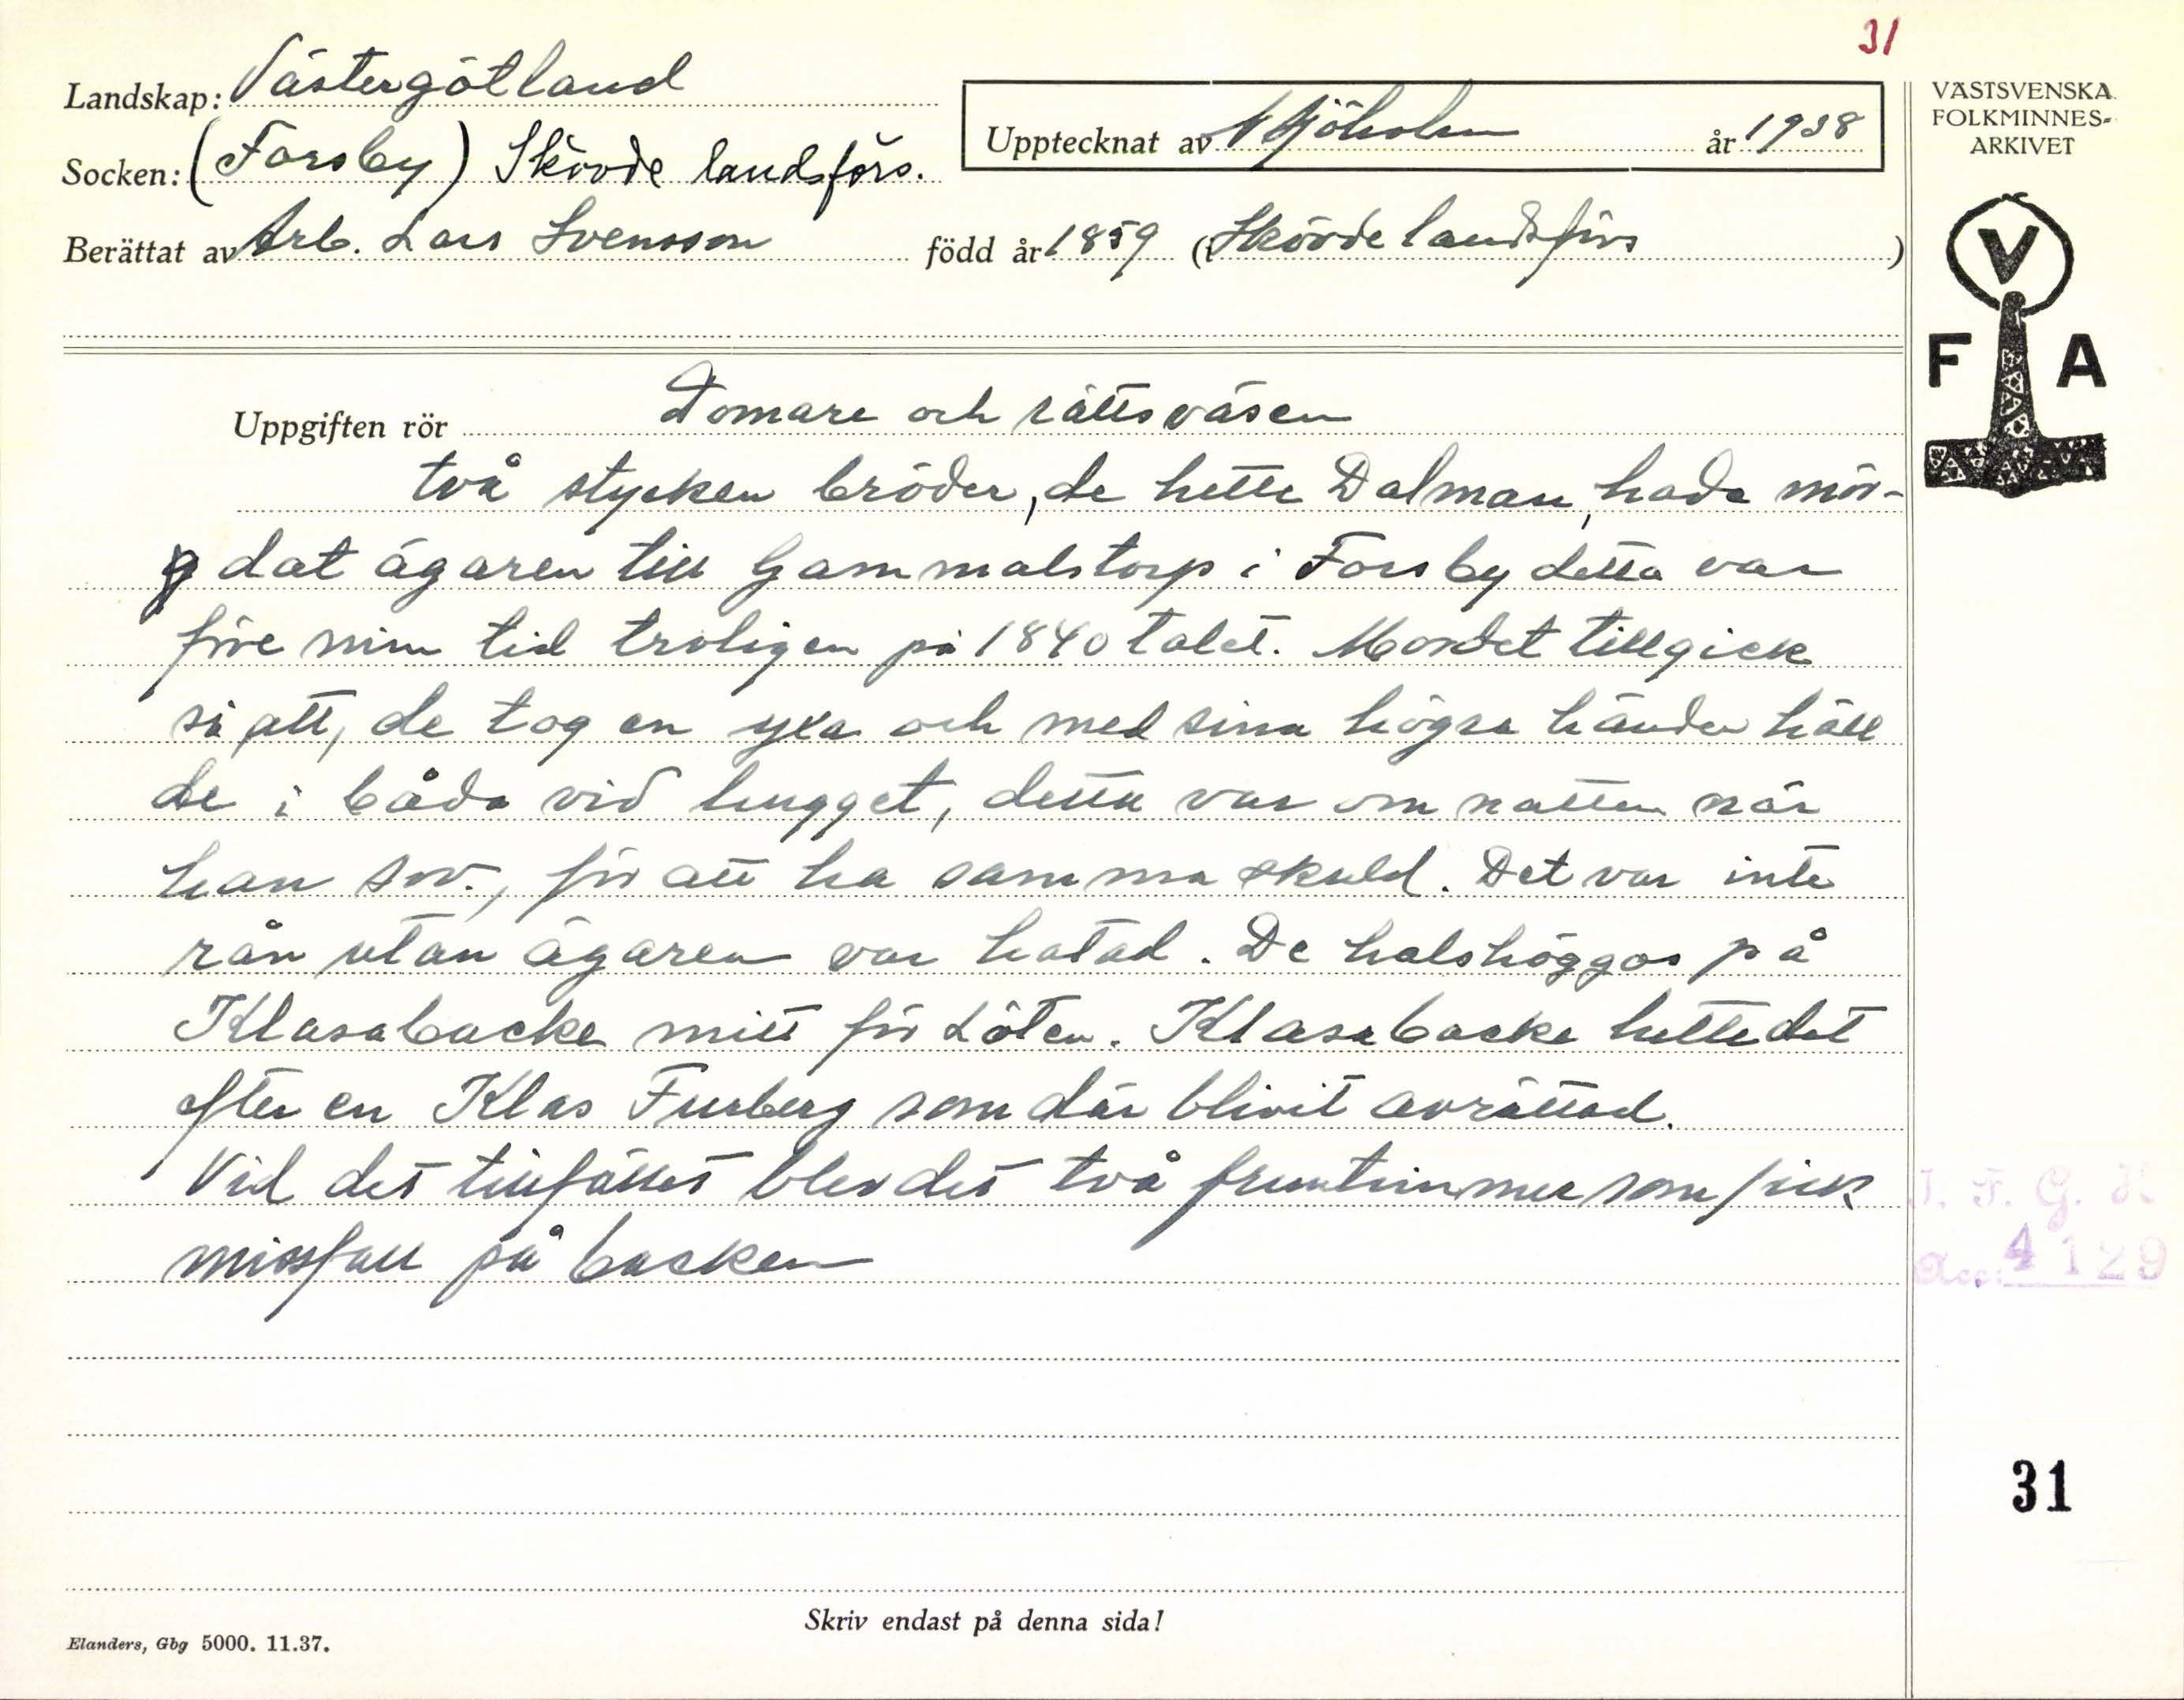 31
Landskap: Västergötland
Socken: (Forsby) Skövde landsförs.
Upptecknat av Sjöholm år 1938
Berättat av Arb. Lars Svensson född år 1859 (i Skövde landsförs)
VÄSTSVENSKA
FOLKMINNES-
ARKIVET
V
F A
Uppgiften rör Domare och rättsväsen
två stycken bröder, de hette Dalman, hade mör-
dat ägaren till Gammalstorp i Forsby detta var
före min tid troligen på 1840 talet. Mordet tillgick
så att, de tog en yxa och med sina högra händer häll
de i båda vid hugget, detta var om natten när
han sov., för att ha samma skuld. Det var inte
rån utan ägaren var hatad. De halshöggos på
Klasabacke mitt för Löten. Klasabacke hette det
efter en Klas Furberg som där blivit avrättad.
Vid det tillfället blev det två fruntimmer som fick
missfall på backen
Acc. 4129
31
Skriv endast på denna sida!
Elanders, Gbg 5000. 11.37.